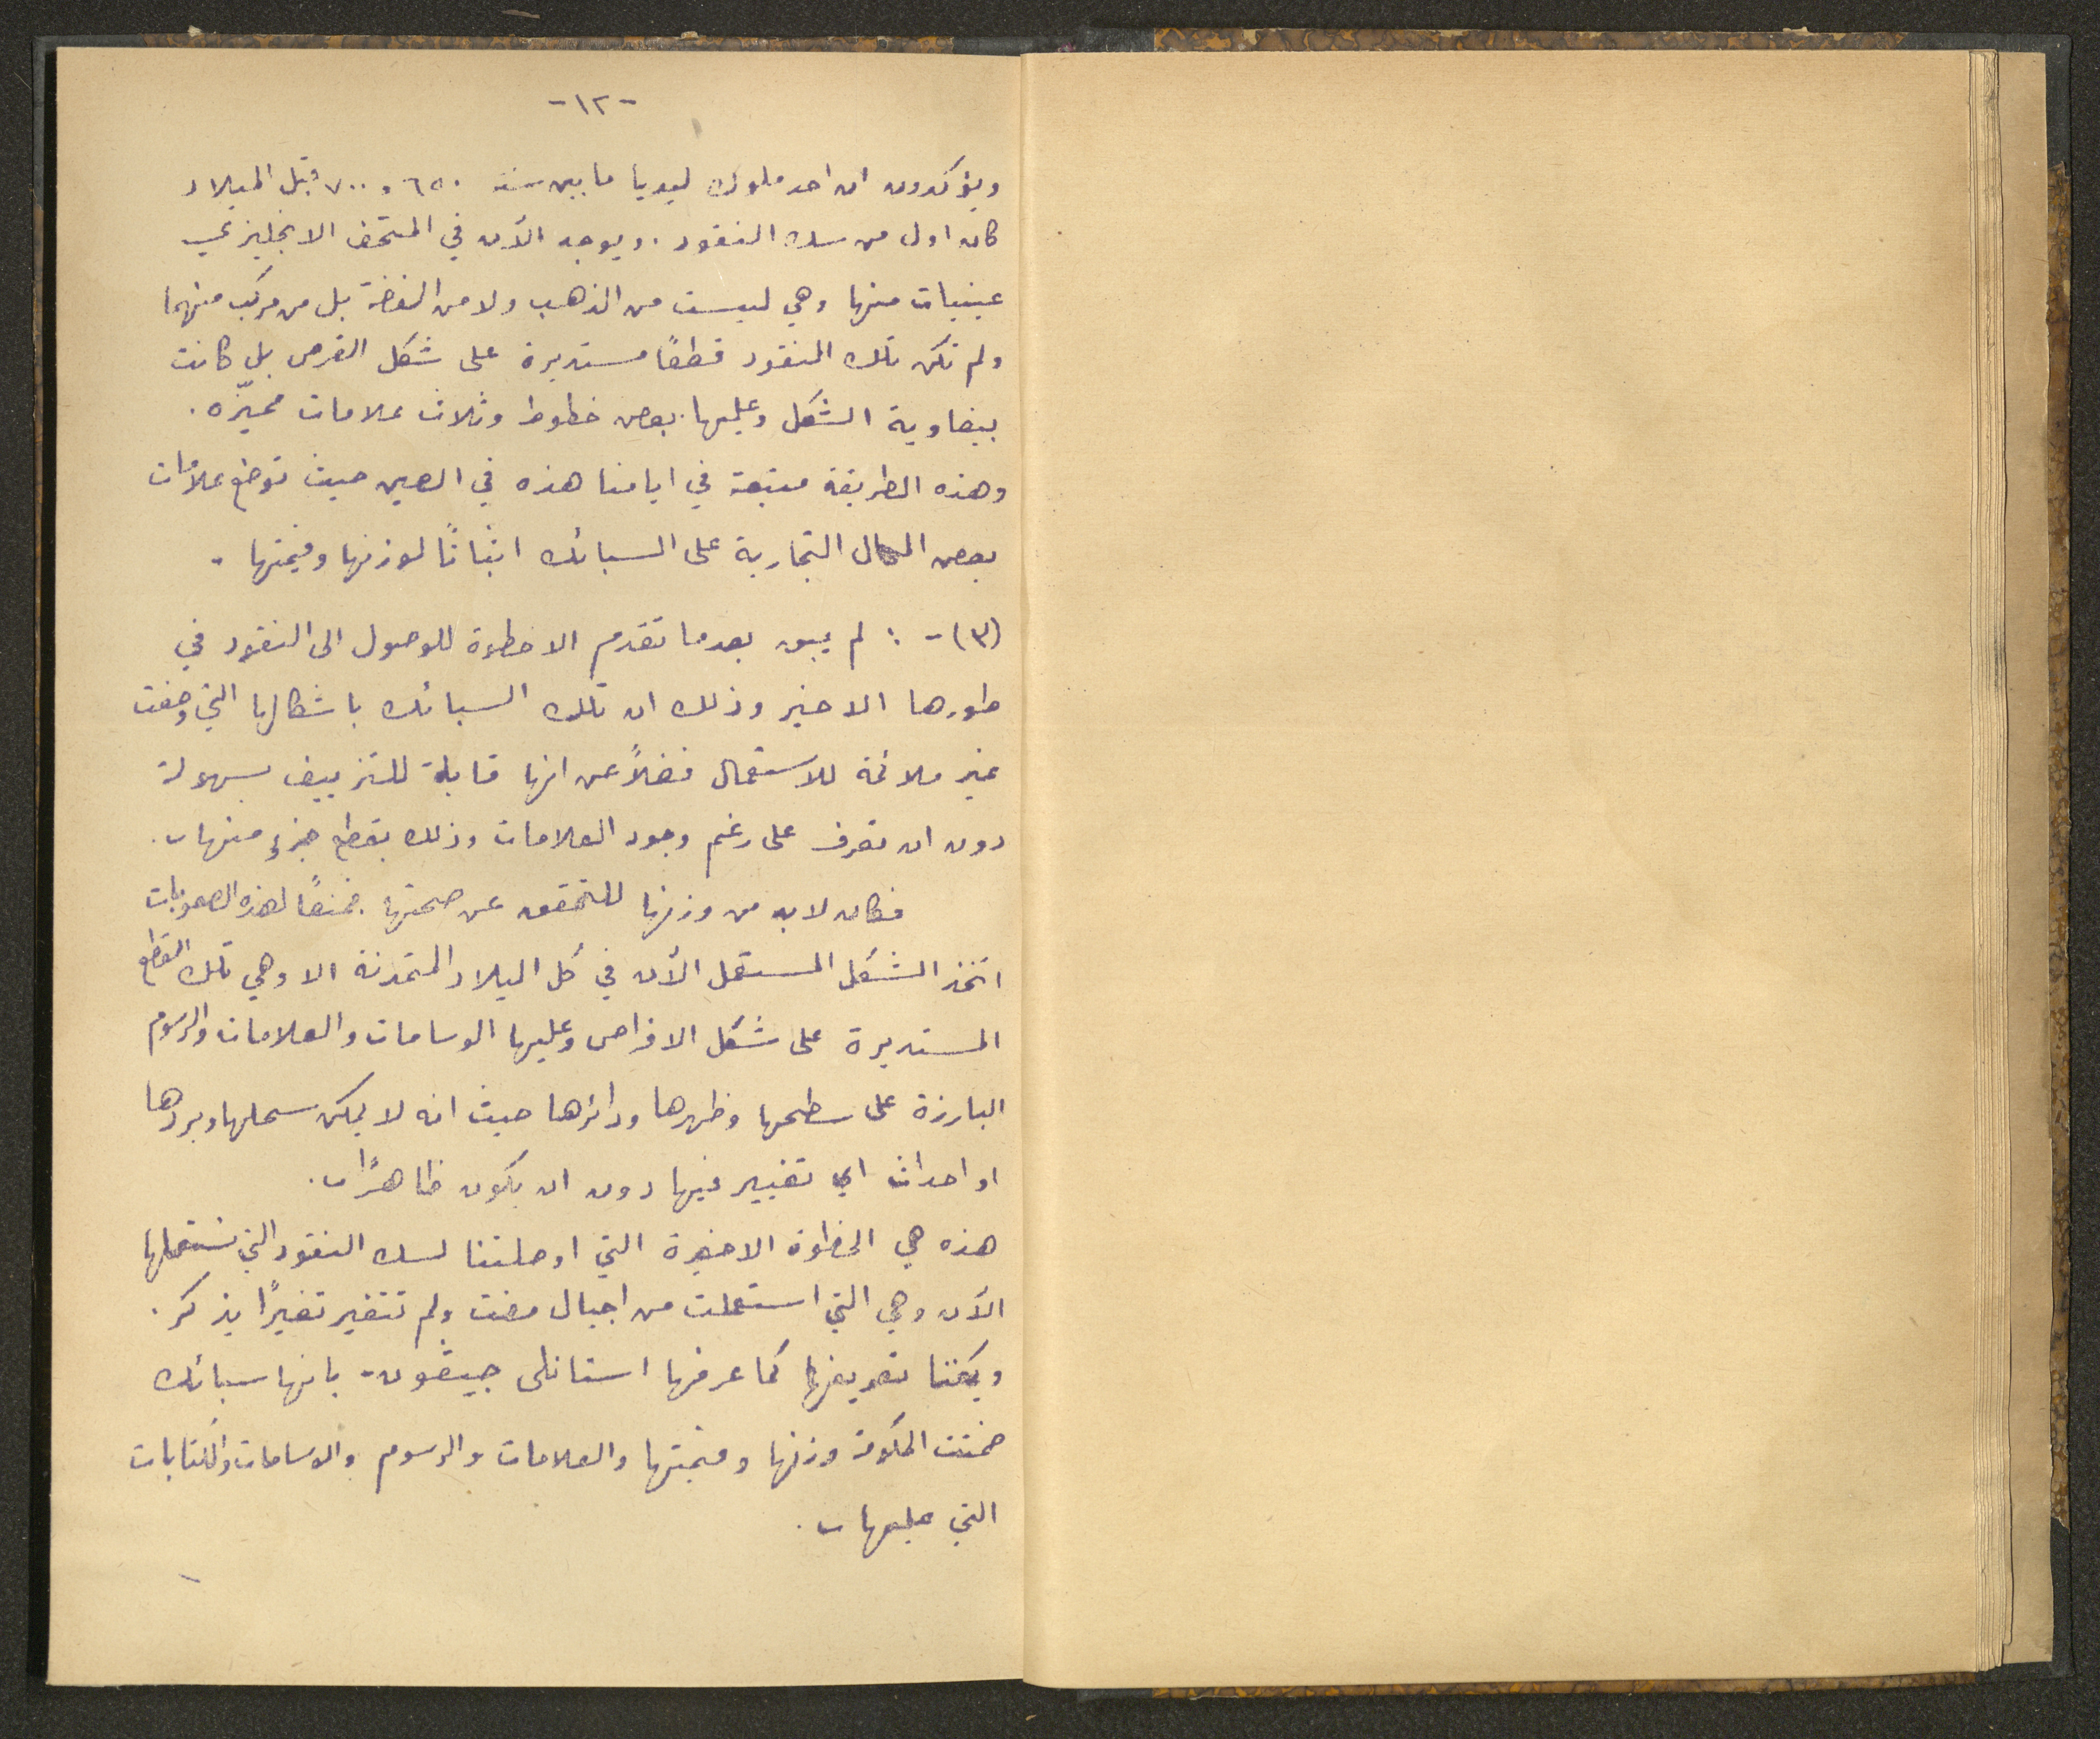 -١٢-
ويؤكدون ان احد ملوك ليديا ما بين سنة ٦٥٠ و ٧٠٠ قبل الميلاد
كان اول من سك النقود. ويوجد الآن في المتحف الانجليزي
عينيات منها وهي ليست من الذهب ولا من الفضة بل من مركب منهما
ولم تكن تلك النقود قطعًا مستديرة على شكل القرص بل كانت
بيضاوية الشكل وعليها بعض خطوط وثلاث علامات مميّزه.
وهذه الطريقة متبعة في ايامنا هذه في الصين حيث توضع علامات
بعض المحال التجارية على السبائك اثباتًا لوزنها وقيمتها -
(٣) -: لم يبق بعد ما تقدم الا خطوة للوصول الى النقود في
طورها الاخير وذلك ان تلك السبائك باشكالها التي وصفت
غير ملائمة للاستعمال فضلاً عن انها قابلة للتزييف بسهولة
دون ان تعرف على رغم وجود العلامات وذلك بقطع جزء منها.
فكان لابد من وزنها للتحقق عن صحتها. فمنعًا لهذه الصعوبات
اتخذ الشكل المستعمل الآن في كل البلاد المتمدنة الا وهي تلك القطع
المستديرة على شكل الاقراص وعليها الوسامات والعلامات والرسوم
البارزة على سطحها وظهرها ودائرها حيث انه لا يمكن سحلها وبردها
او احداث اي تغيير فيها دون ان يكون ظاهرًا.
هذه هي الخطوة الاخيرة التي اوصلتنا لسك النقود التي نستعملها
الآن وهي التي استعملت من اجيال مضت ولم تتغير تغيرًا يذكر.
ويمكننا تعريفها كما عرفها استانلى جيڤون - بانها سبائك
ضمنت الحكومة وزنها وقيمتها والعلامات والرسوم والوسامات والكتابات
التي عليها.